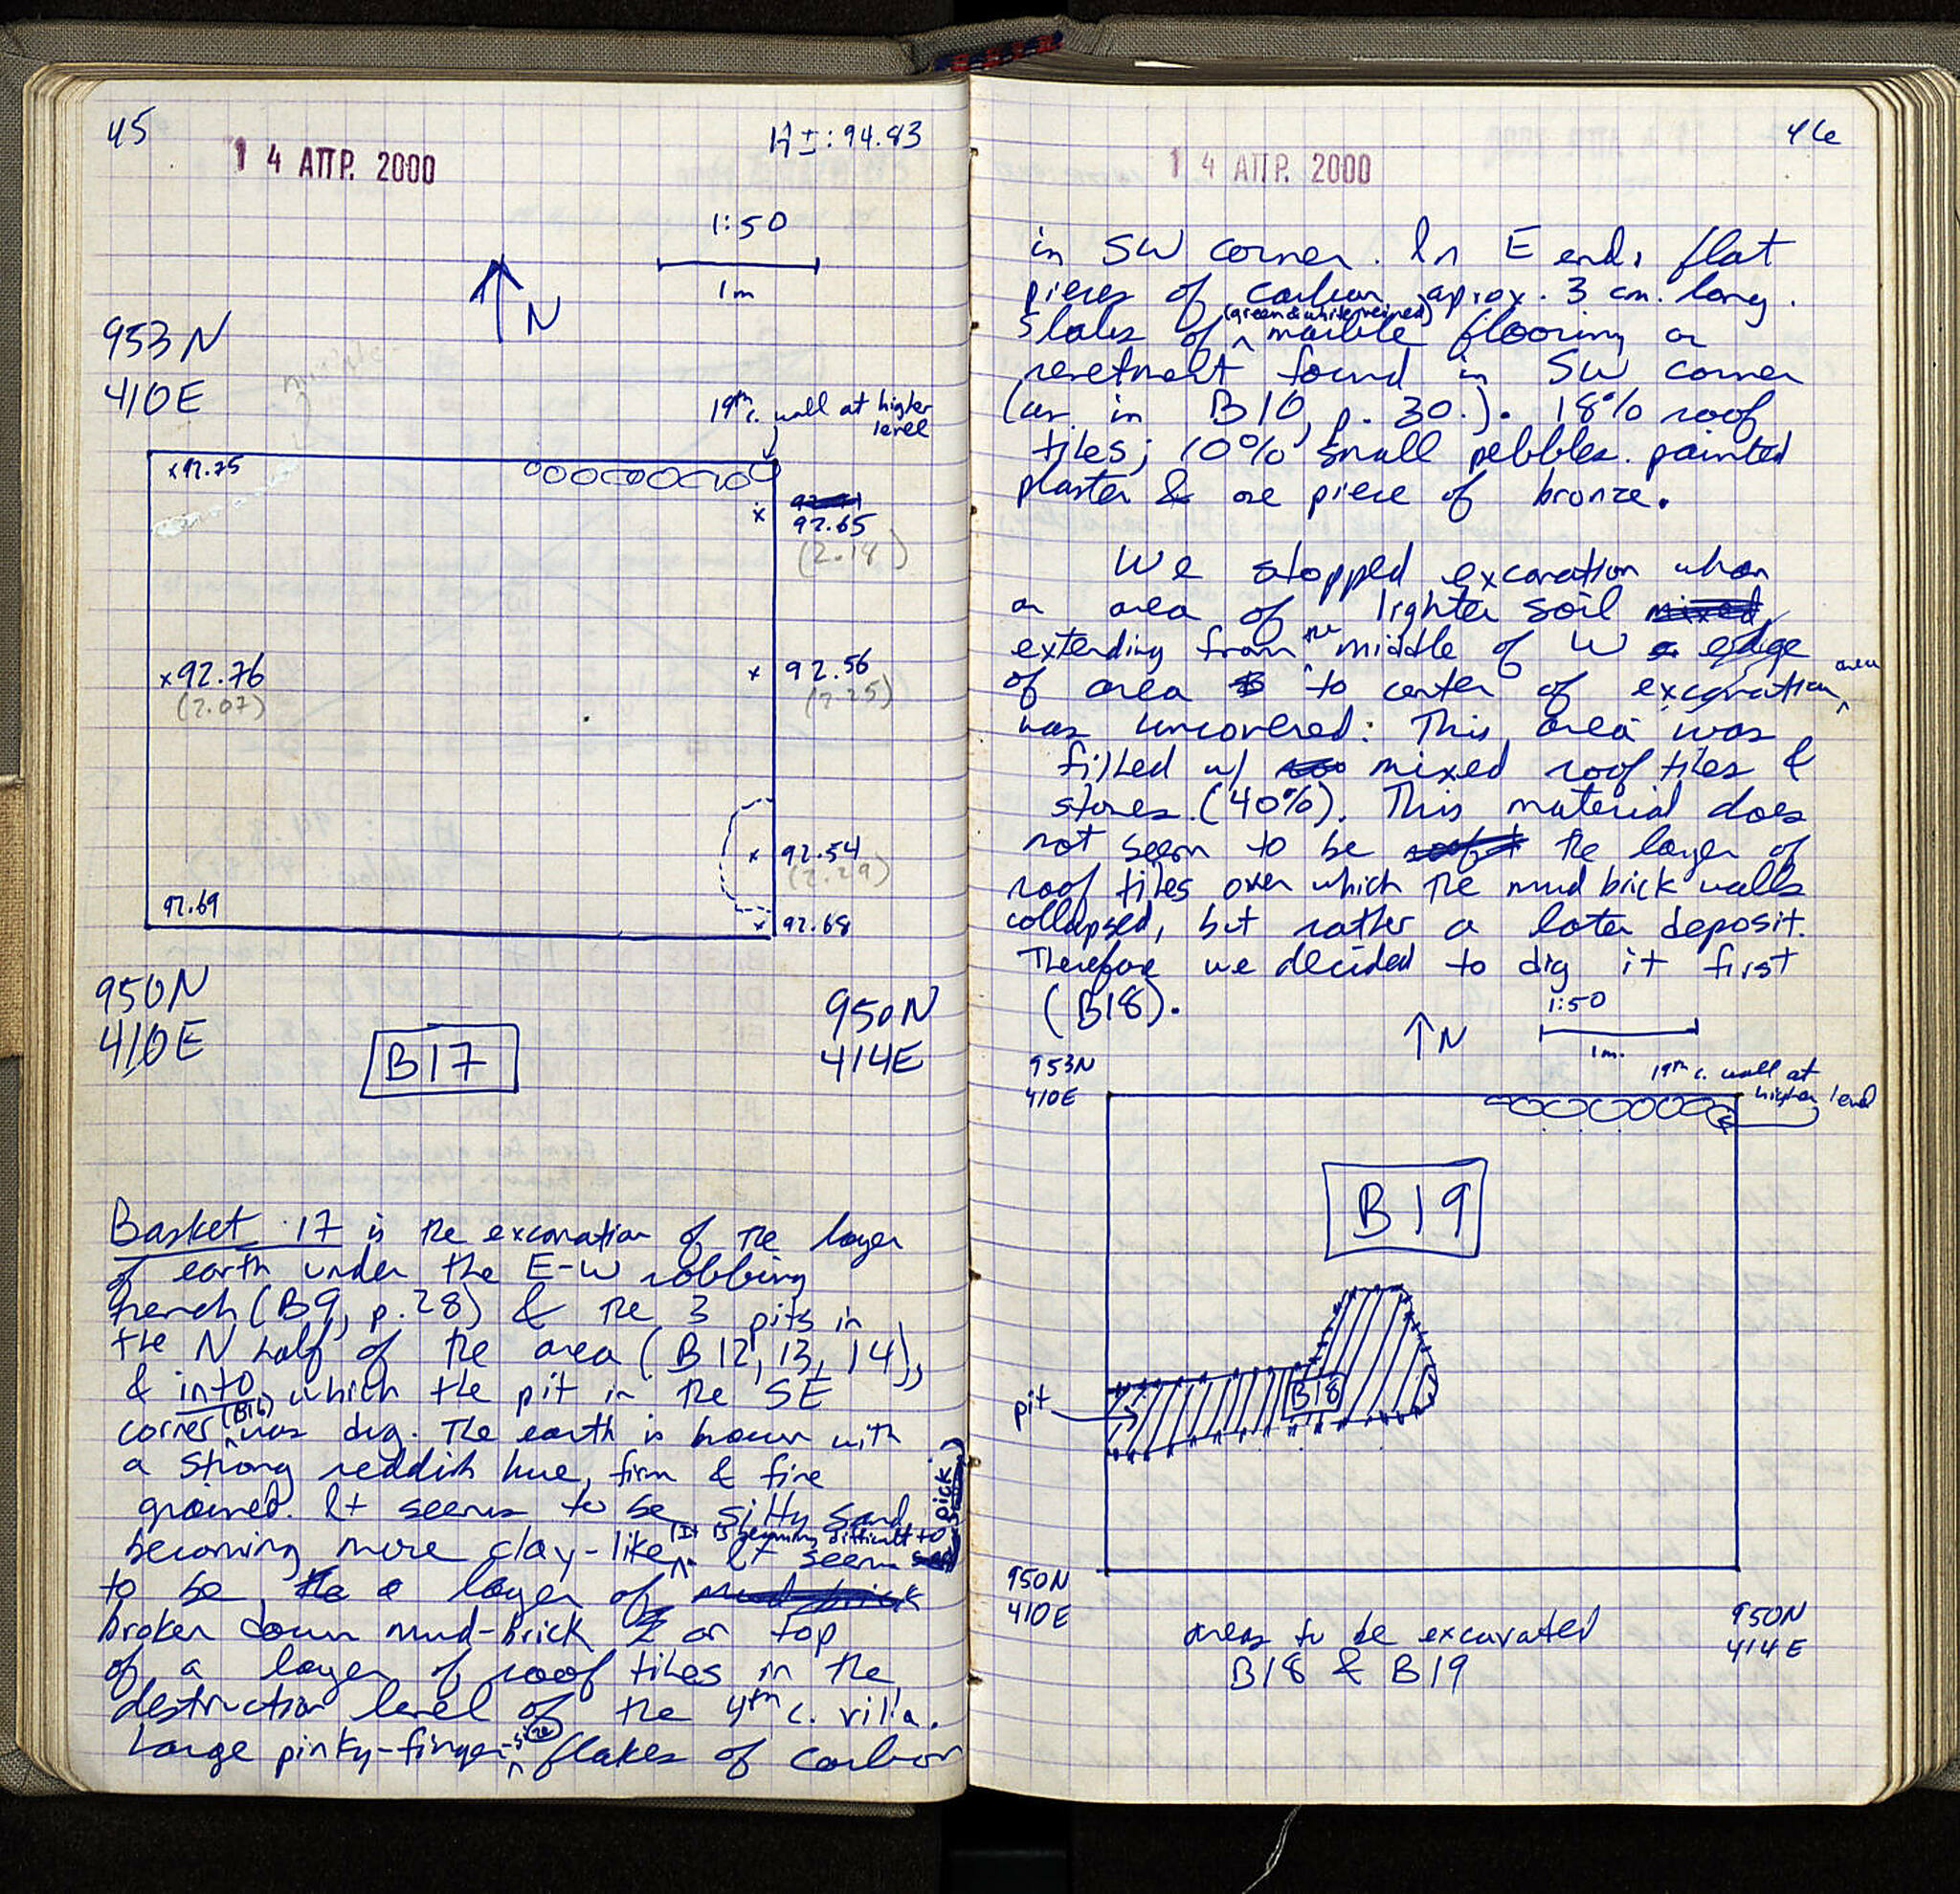 45
HI: 94.83
14 ΑΠΡ. 2000
1:50
1m
N
953N
410E
19th c. wall at higher
level
x92.75
x 92.65
(2.18)
x92.76
(2.07)
x 92.56
(2.25)
x 92.54
(2.29)
92.69
x 92.68
950N
410E
B17
950N
414E
Basket 17 is the excavation of the layer
of earth under the E-W robbing
trench (B9, p.28) & the 3 pits in
the N half of the area (B12, 13, 14),
& into which the pit in the SE
corner (B16) was dug. The earth is brown with
a strong reddish hue, firm & fine
grained. It seems to be silty sand
becoming more clay-like (It is becoming difficult to pick). It seems
to be a layer of
broken down mud-brick or top
of a layer of roof tiles in the
destruction level of the 4th c. villa.
Large pinky-finger-size flakes of carbon
46
14 ΑΠΡ. 2000
in SW corner. In E end, flat
pieces of carbon aprox. 3 cm. long.
Slabs of (green & white veined) marble flooring or
revetment found in SW corner
(as in B10, p. 30.). 18% roof
tiles; 10% small pebbles. painted
plaster & one piece of bronze.
We stopped excavation when
an area of lighter soil
extending from the middle of W edge
of area to center of excavation area
was uncovered. This area was
filled w/ mixed roof tiles &
stones (40%). This material does
not seem to be the layer of
roof tiles over which the mud brick walls
collapsed, but rather a later deposit.
Therefore we decided to dig it first
(B18).
1:50
N
1m.
953N
410E
19th c. wall at
higher level
B19
B18
pit
950N
410E
950N
414E
areas to be excavated
B18 & B19